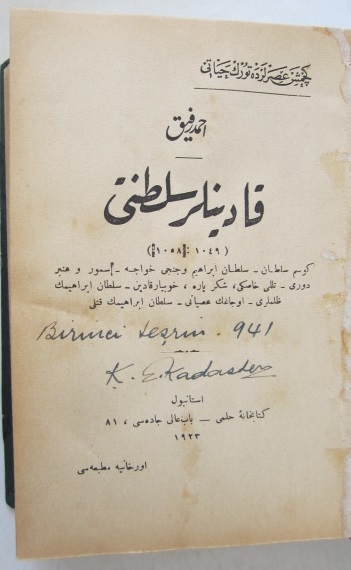 كچمش عصرلرده تورك حياتی
احمد رفيق
قادينلر سلطنتی
(١٠٤٩ - ١٠٥٨)
كوسم سلطان - سلطان ابراهيم وجنجی خواجه - سمور و عنبر
دوری - تللی خاصكی، شكر پاره، خوبيار قادين - سلطان ابراهيمك
ظلملری - اوجاغك عصيانی - سلطان ابراهيمك قتلی
Birinci teşrin. 941
K. E. Kadaster
استانبول
كتابخانهٔ حلمی — باب عالی جاده سی، ٨١
١٩٢٣
اورخانيه مطبعه سی